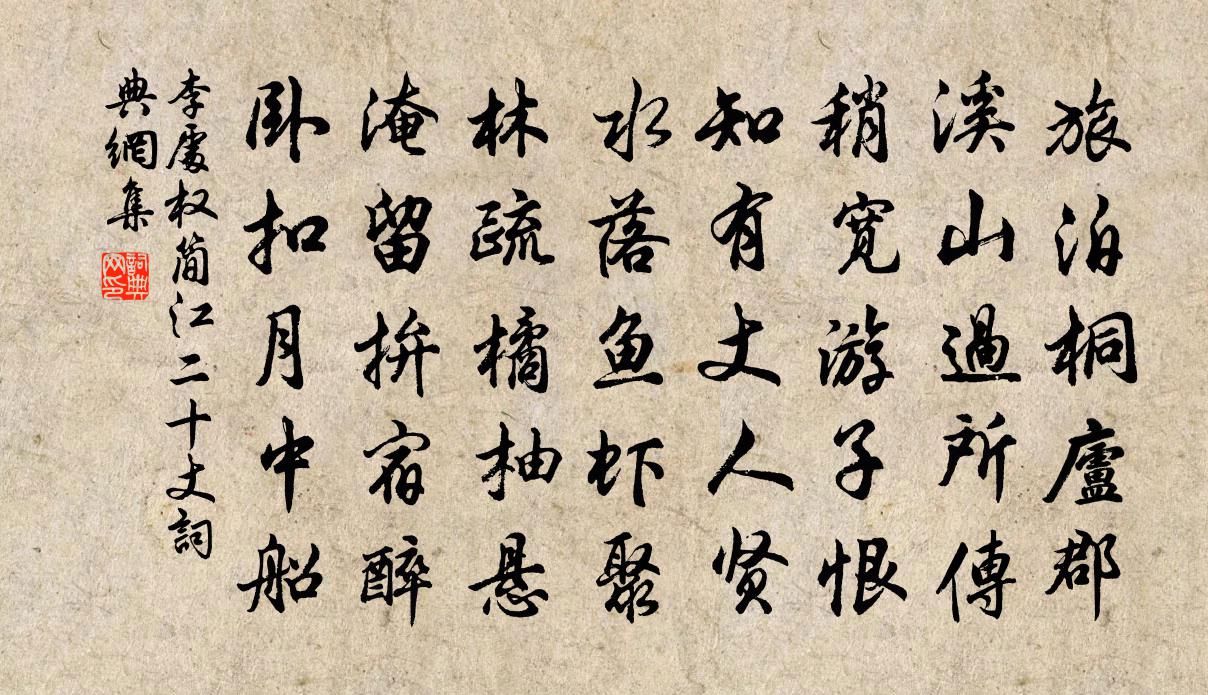 旅泊桐廬郡
溪山過所傳
稍寬游子恨
知有丈人贤
水落鱼虾聚
林疏橘柚悬
淹留拚宿醉
卧扣月中船
李處权简江二十丈詞
典網集
詞典
网印